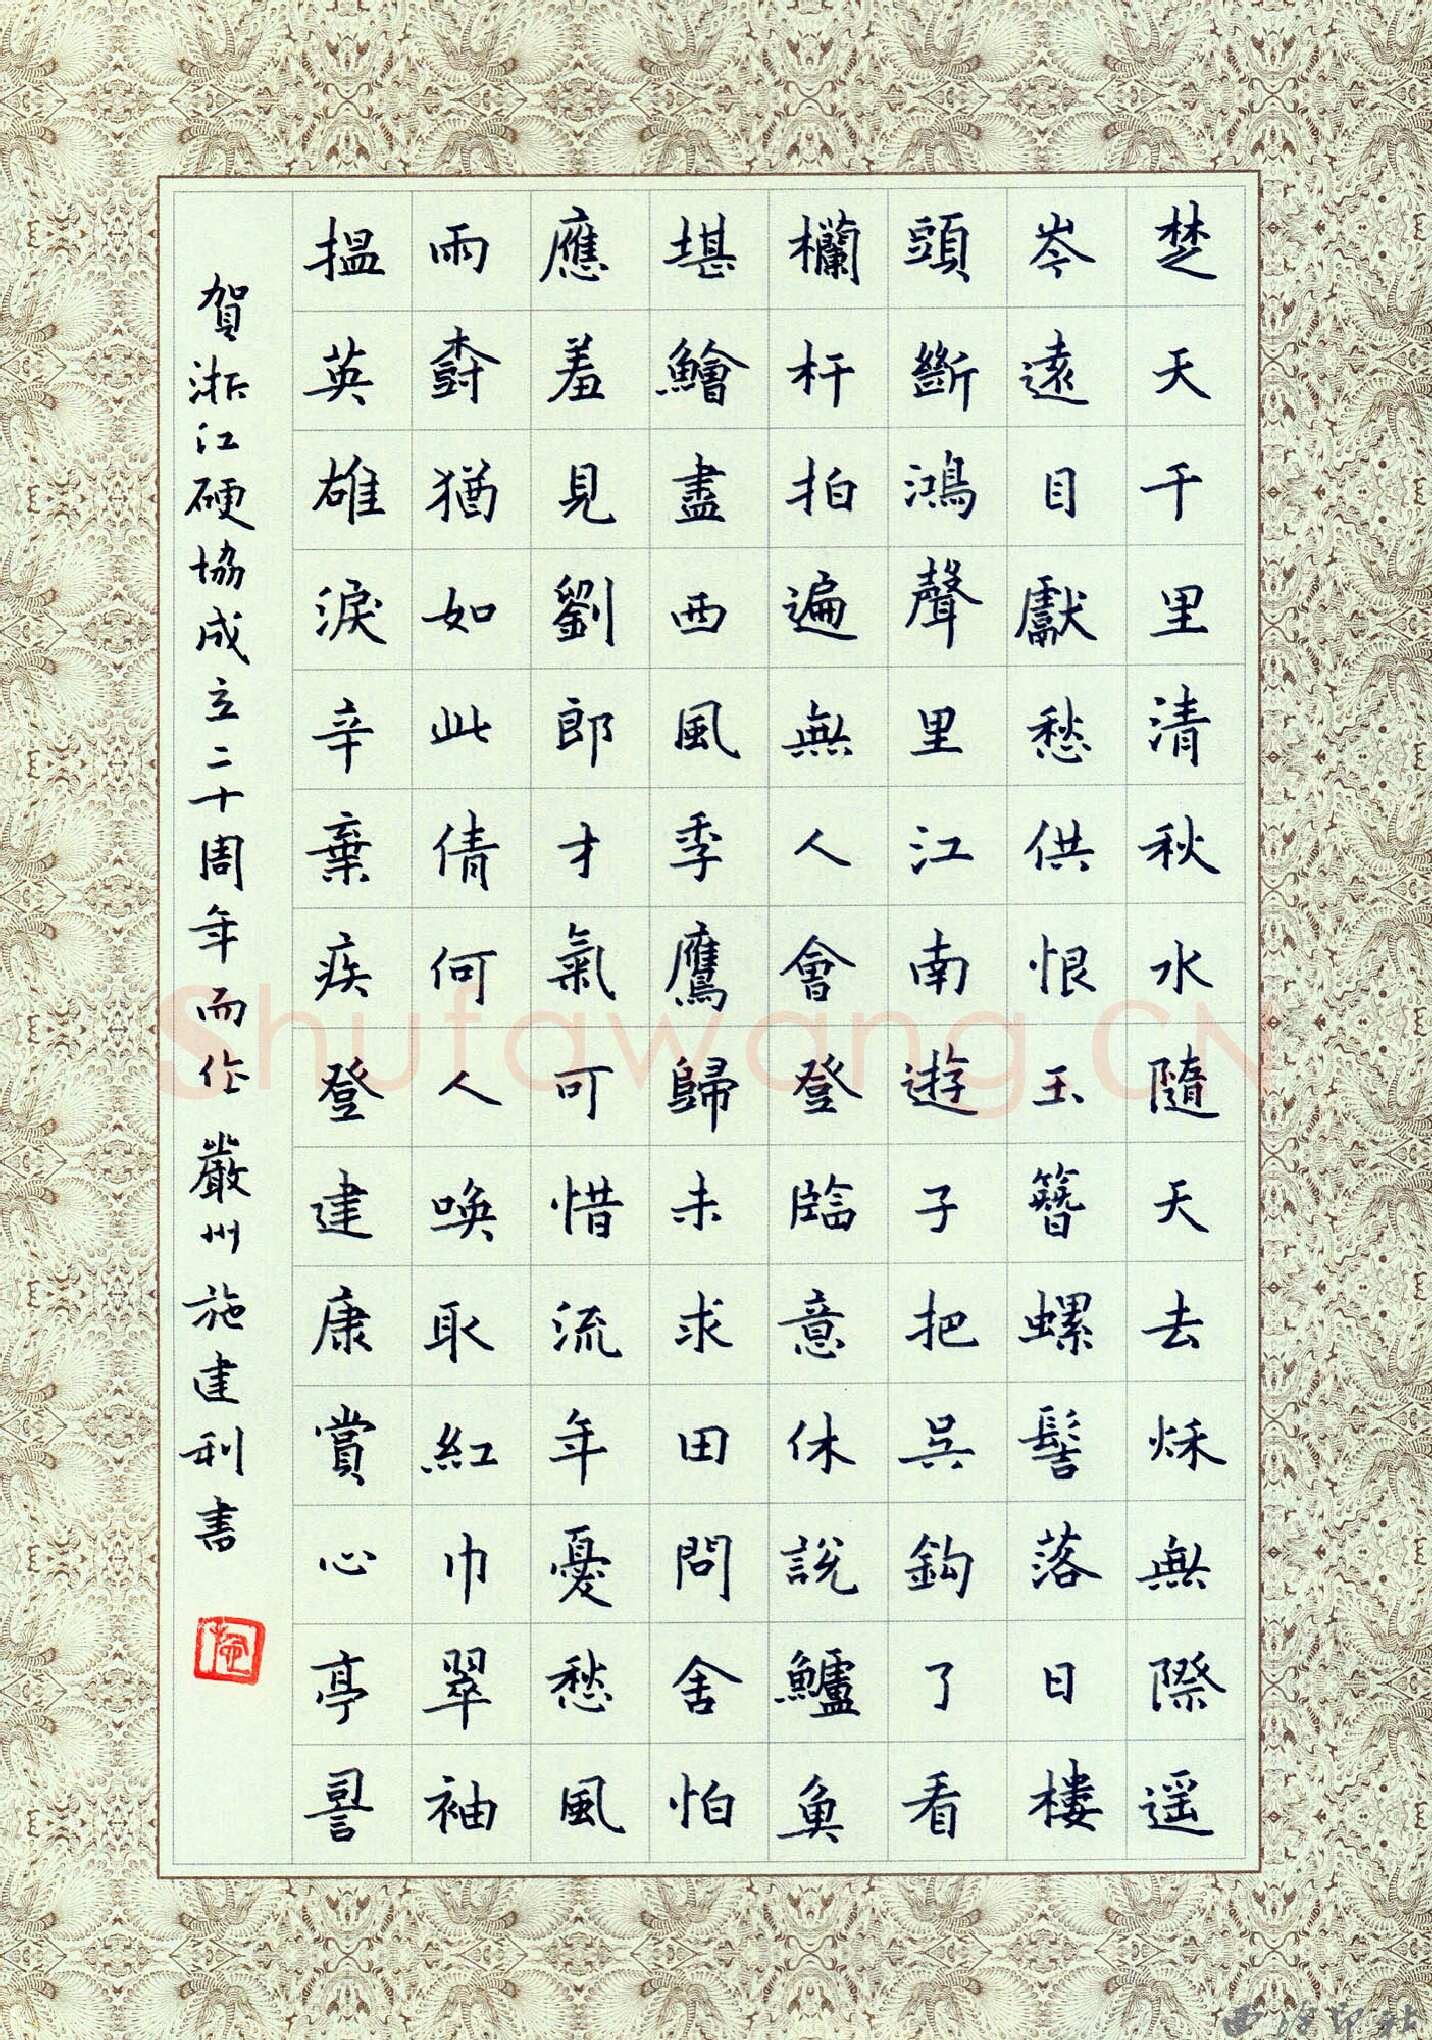 楚天千里清秋水隨天去秌無際遥
岑遠目獻愁供恨玉簪螺髻落日樓
頭斷鴻聲里江南遊子把吴鈎了看
欄杆拍遍無人會登臨意休説鱸魚
堪鱠盡西風季鷹歸未求田問舍怕
應羞見劉郎才氣可惜流年憂愁風
雨樹猶如此倩何人喚取紅巾翠袖
搵英雄淚辛棄疾登建康賞心亭詞
賀浙江硬協成立二十周年而作 嚴州施建利書
Shufawang.CN
西泠印社